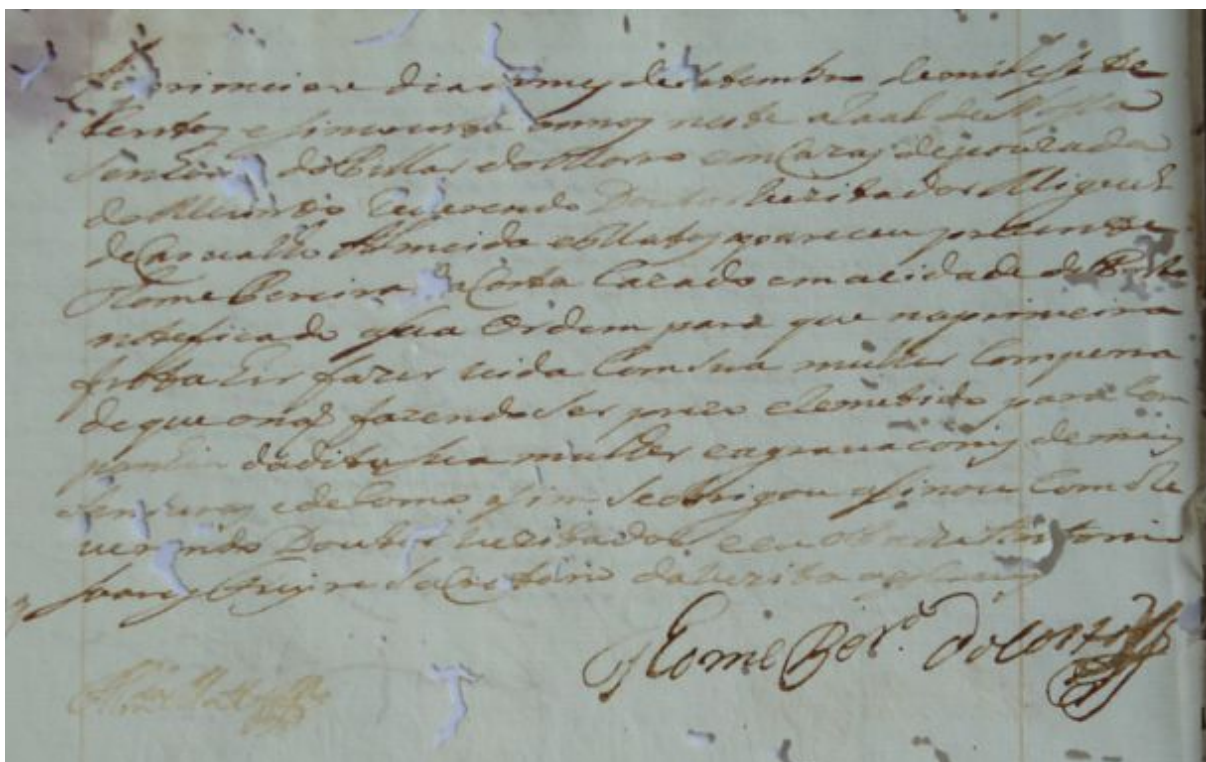 Ao primeiro dia do mes de Setembro de mil e sete
centos e sincoenta annos neste aRaal de Nossa
Senhora do Pillar do Morro em Cazas de pouzada
do Muinto Reverendo Doutor vezitador Miguel
de Carvalho Almeida e Mattos apareceu prezente
Thome Pereira da Costa Cazado em a cidade do Porto
noteficado a sua Ordem para que na primeira
frota hir fazer vida Com sua molher Com pena
de que o não fazendo Ser prezo e Remetido para Com
panhia da dita sua molher
e de Como asim Se obrigou asinou Com o Re
verendo Doutor vezitador e eu o Padre Antonio
Secretario da vezita
Thome Per.ª da Costa